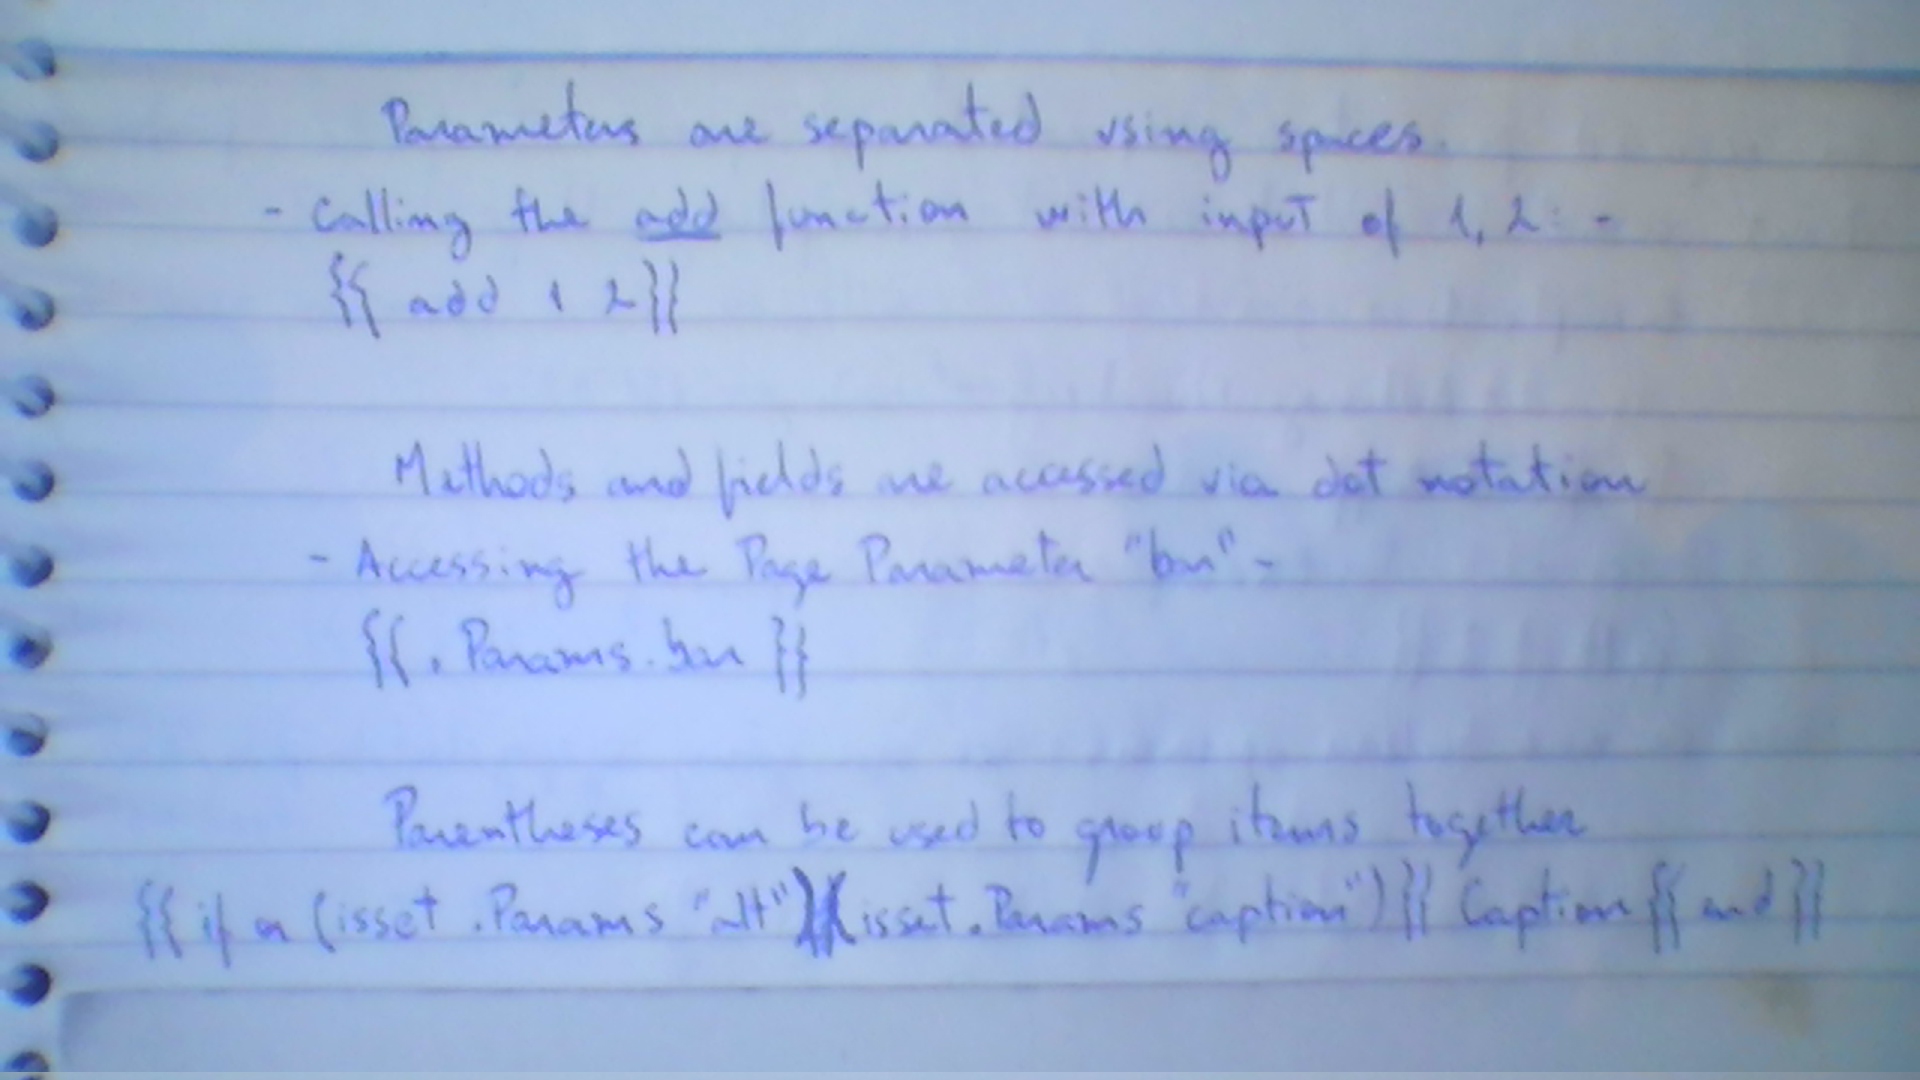 Parameters are separated using spaces.
- Calling the add function with input of 1, 2: -
{{ add 1 2 }}
Methods and fields are accessed via dot notation
- Accessing the Page Parameter "bar" -
{{ .Params.bar }}
Parentheses can be used to group items together
{{ if or (isset .Params "alt") (isset .Params "caption") }} Caption {{ end }}